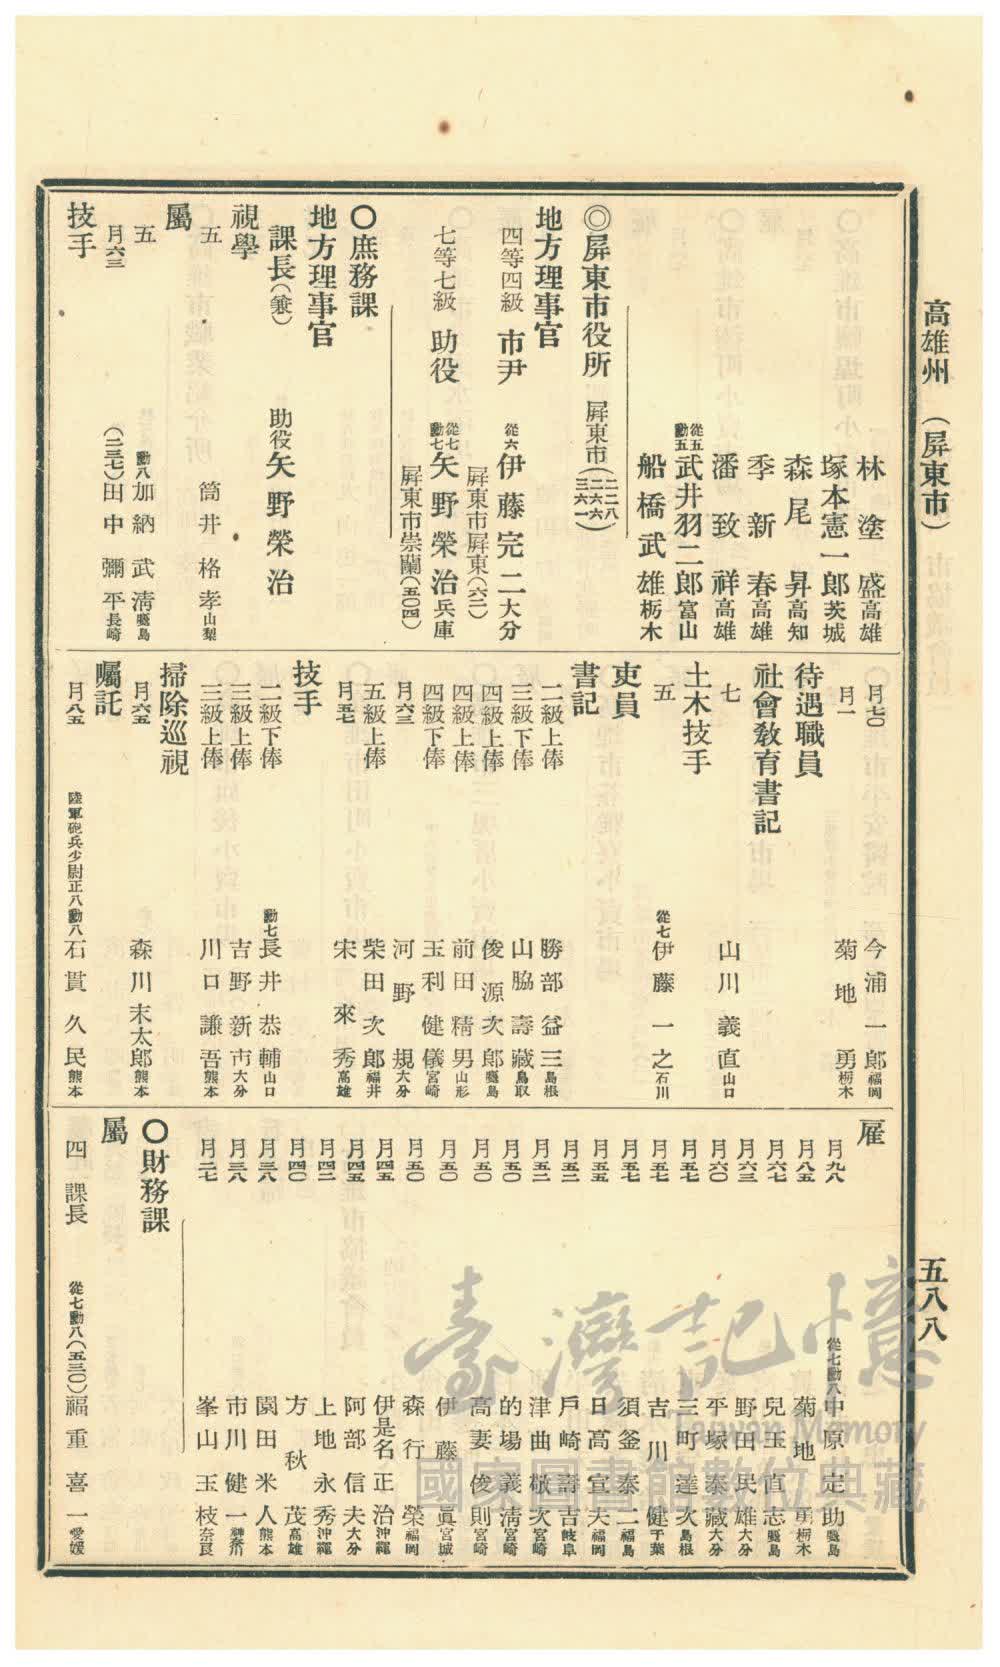 高雄州 (屏東市)
五八八
林塗盛 高雄
塚本憲一郎 茨城
森尾昇 高知
季新春 高雄
潘致祥 高雄
從五勳五 武井羽二郎 富山
船橋武雄 栃木
◎屏東市役所 屏東市(二二八 二六六 三六一)
地方理事官
四等四級 市尹 從六 伊藤完二 大分
屏東市屏東(六二)
七等七級 助役 從七勳七 矢野榮治 兵庫
屏東市崇蘭(五〇四)
○庶務課
地方理事官
課長(兼) 助役 矢野榮治
視學
五 筒井格孝 山梨
屬
五 勳八 加納武清 鹿島
月六三 (二三七)田中彌平 長崎
技手
月七〇 今浦一郎 福岡
月一 菊地勇 栃木
待遇職員
社會敎育書記
七 山川義直 山口
土木技手
五 從七 伊藤一之 石川
吏員
書記
二級上俸 勝部益三 島根
三級下俸 山脇壽藏 鳥取
四級上俸 俊源次郎 鹿島
四級上俸 前田精男 山形
四級下俸 玉利健儀 宮崎
月六三 河野規 大分
五級上俸 柴田次郎 福井
月五七 宋來秀 高雄
技手
二級下俸 勳七 長井恭輔 山口
三級上俸 吉野新市 大分
三級上俸 川口謙吾 熊本
掃除巡視
月六五 森川末太郎 熊本
囑託
月八五 陸軍砲兵少尉正八勳八 石貫久民 熊本
雇
月九八 從七勳八 中原定助 鹿島
月八五 菊地勇 栃木
月六七 兒玉直志 鹿島
月六三 野田民雄 大分
月六〇 平塚泰藏 大分
月五七 三町達次 島根
月五七 吉川健 千葉
月五七 須釜泰二 福島
月五五 日高宣夫 福岡
月五二 戶崎壽吉 岐阜
月五二 津曲敬次 宮崎
月五〇 的場義淸 宮崎
月五〇 高妻俊則 宮崎
月五〇 伊藤眞 宮城
月五〇 森行榮 福岡
月四五 伊是名正治 沖繩
月四五 阿部信夫 大分
月四二 上地永秀 沖繩
月四〇 方秋茂 高雄
月三八 園田米人 熊本
月三八 市川健一 神奈川
月二七 峯山玉枝 奈良
○財務課
屬
四 課長 從七勳八(五三〇)福重喜一 愛媛
臺灣記憶
Taiwan Memory
國家圖書館數位典藏